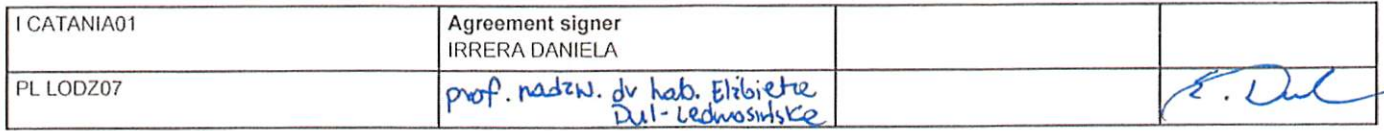 I CATANIA01
Agreement signer
IRRERA DANIELA
PL LODZ07
prof. nadzw. dr hab. Elżbieta
Dul-Ledwosińska
E. Dul